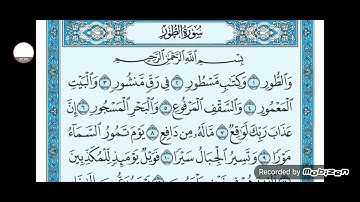 سُورَةُ الطُّورِ
بِسْمِ اللَّهِ الرَّحْمَٰنِ الرَّحِيمِ
وَالطُّورِ ١ وَكِتَابٍ مَّسْطُورٍ ٢ فِي رَقٍّ مَّنشُورٍ ٣ وَالْبَيْتِ
الْمَعْمُورِ ٤ وَالسَّقْفِ الْمَرْفُوعِ ٥ وَالْبَحْرِ الْمَسْجُورِ ٦ إِنَّ
عَذَابَ رَبِّكَ لَوَاقِعٌ ٧ مَّا لَهُ مِن دَافِعٍ ٨ يَوْمَ تَمُورُ السَّمَاءُ
مَوْرًا ٩ وَتَسِيرُ الْجِبَالُ سَيْرًا ١٠ فَوَيْلٌ يَوْمَئِذٍ لِّلْمُكَذِّبِينَ
Recorded by
Mobizen